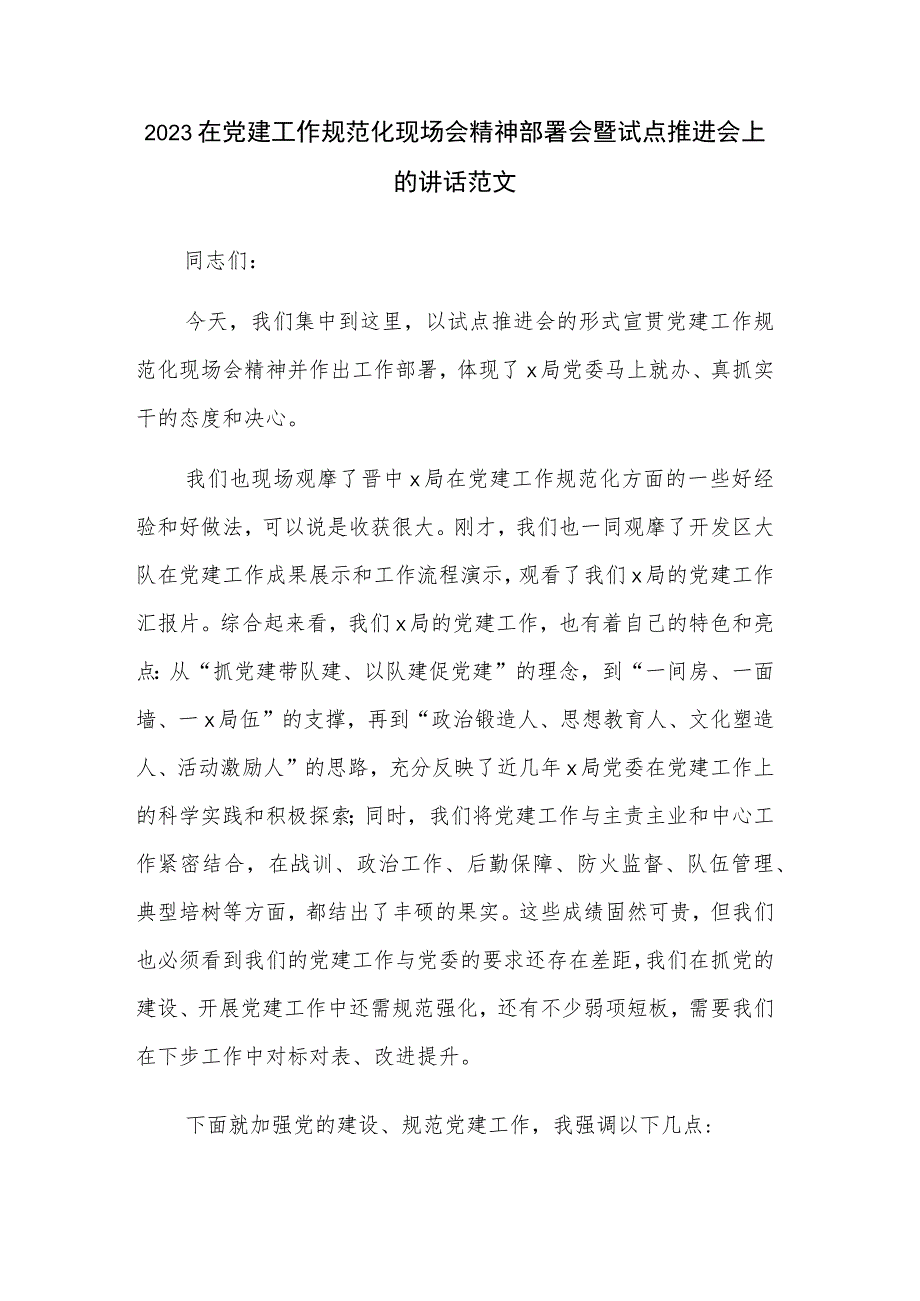 2023在党建工作规范化现场会精神部署会暨试点推进会上
的讲话范文
同志们：
今天，我们集中到这里，以试点推进会的形式宣贯党建工作规
范化现场会精神并作出工作部署，体现了x局党委马上就办、真抓实
干的态度和决心。
我们也现场观摩了晋中x局在党建工作规范化方面的一些好经
验和好做法，可以说是收获很大。刚才，我们也一同观摩了开发区大
队在党建工作成果展示和工作流程演示，观看了我们x局的党建工作
汇报片。综合起来看，我们x局的党建工作，也有着自己的特色和亮
点：从“抓党建带队建、以队建促党建”的理念，到“一间房、一面
墙、一x局伍”的支撑，再到“政治锻造人、思想教育人、文化塑造
人、活动激励人”的思路，充分反映了近几年x局党委在党建工作上
的科学实践和积极探索；同时，我们将党建工作与主责主业和中心工
作紧密结合，在战训、政治工作、后勤保障、防火监督、队伍管理、
典型培树等方面，都结出了丰硕的果实。这些成绩固然可贵，但我们
也必须看到我们的党建工作与党委的要求还存在差距，我们在抓党的
建设、开展党建工作中还需规范强化，还有不少弱项短板，需要我们
在下步工作中对标对表、改进提升。
下面就加强党的建设、规范党建工作，我强调以下几点：